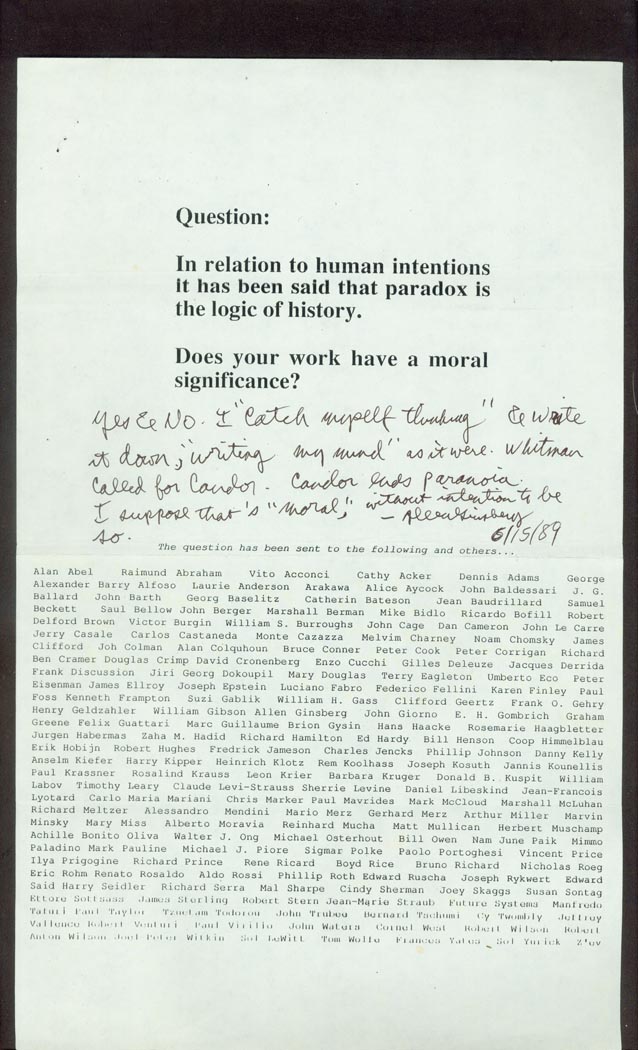 Question:
In relation to human intentions
it has been said that paradox is
the logic of history.
Does your work have a moral
significance?
Yes & No. I "Catch myself thinking" & write
it down, "writing my mind" as it were. Whitman
called for Candor. Candor ends paranoia.
I suppose that's "moral," without intention to be
so. — Allen Ginsberg
6/15/89
The question has been sent to the following and others...
Alan Abel Raimund Abraham Vito Acconci Cathy Acker Dennis Adams George
Alexander Barry Alfoso Laurie Anderson Arakawa Alice Aycock John Baldessari J. G.
Ballard John Barth Georg Baselitz Catherin Bateson Jean Baudrillard Samuel
Beckett Saul Bellow John Berger Marshall Berman Mike Bidlo Ricardo Bofill Robert
Delford Brown Victor Burgin William S. Burroughs John Cage Dan Cameron John Le Carre
Jerry Casale Carlos Castaneda Monte Cazazza Melvim Charney Noam Chomsky James
Clifford Joh Colman Alan Colquhoun Bruce Conner Peter Cook Peter Corrigan Richard
Ben Cramer Douglas Crimp David Cronenberg Enzo Cucchi Gilles Deleuze Jacques Derrida
Frank Discussion Jiri Georg Dokoupil Mary Douglas Terry Eagleton Umberto Eco Peter
Eisenman James Ellroy Joseph Epstein Luciano Fabro Federico Fellini Karen Finley Paul
Foss Kenneth Frampton Suzi Gablik William H. Gass Clifford Geertz Frank O. Gehry
Henry Geldzahler William Gibson Allen Ginsberg John Giorno E. H. Gombrich Graham
Greene Felix Guattari Marc Guillaume Brion Gysin Hans Haacke Rosemarie Haagbletter
Jurgen Habermas Zaha M. Hadid Richard Hamilton Ed Hardy Bill Henson Coop Himmelblau
Erik Hobijn Robert Hughes Fredrick Jameson Charles Jencks Phillip Johnson Danny Kelly
Anselm Kiefer Harry Kipper Heinrich Klotz Rem Koolhass Joseph Kosuth Jannis Kounellis
Paul Krassner Rosalind Krauss Leon Krier Barbara Kruger Donald B. Kuspit William
Labov Timothy Leary Claude Levi-Strauss Sherrie Levine Daniel Libeskind Jean-Francois
Lyotard Carlo Maria Mariani Chris Marker Paul Mavrides Mark McCloud Marshall McLuhan
Richard Meltzer Alessandro Mendini Mario Merz Gerhard Merz Arthur Miller Marvin
Minsky Mary Miss Alberto Moravia Reinhard Mucha Matt Mullican Herbert Muschamp
Achille Bonito Oliva Walter J. Ong Michael Osterhout Bill Owen Nam June Paik Mimmo
Paladino Mark Pauline Michael J. Piore Sigmar Polke Paolo Portoghesi Vincent Price
Ilya Prigogine Richard Prince Rene Ricard Boyd Rice Bruno Richard Nicholas Roeg
Eric Rohm Renato Rosaldo Aldo Rossi Phillip Roth Edward Ruscha Joseph Rykwert Edward
Said Harry Seidler Richard Serra Mal Sharpe Cindy Sherman Joey Skaggs Susan Sontag
Ettore Sottsass James Sterling Robert Stern Jean-Marie Straub Future Systems Manfredo
Tafuri Paul Taylor Tzvetam Todorou John Trubee Bernard Tschumi Cy Twombly Jeffrey
Vallence Robert Venturi Paul Virilio John Waters Cornel West Robert Wilson Robert
Anton Wilson Joel Peter Witkin Sol LeWitt Tom Wolfe Frances Yates Sol Yurick Z'ev